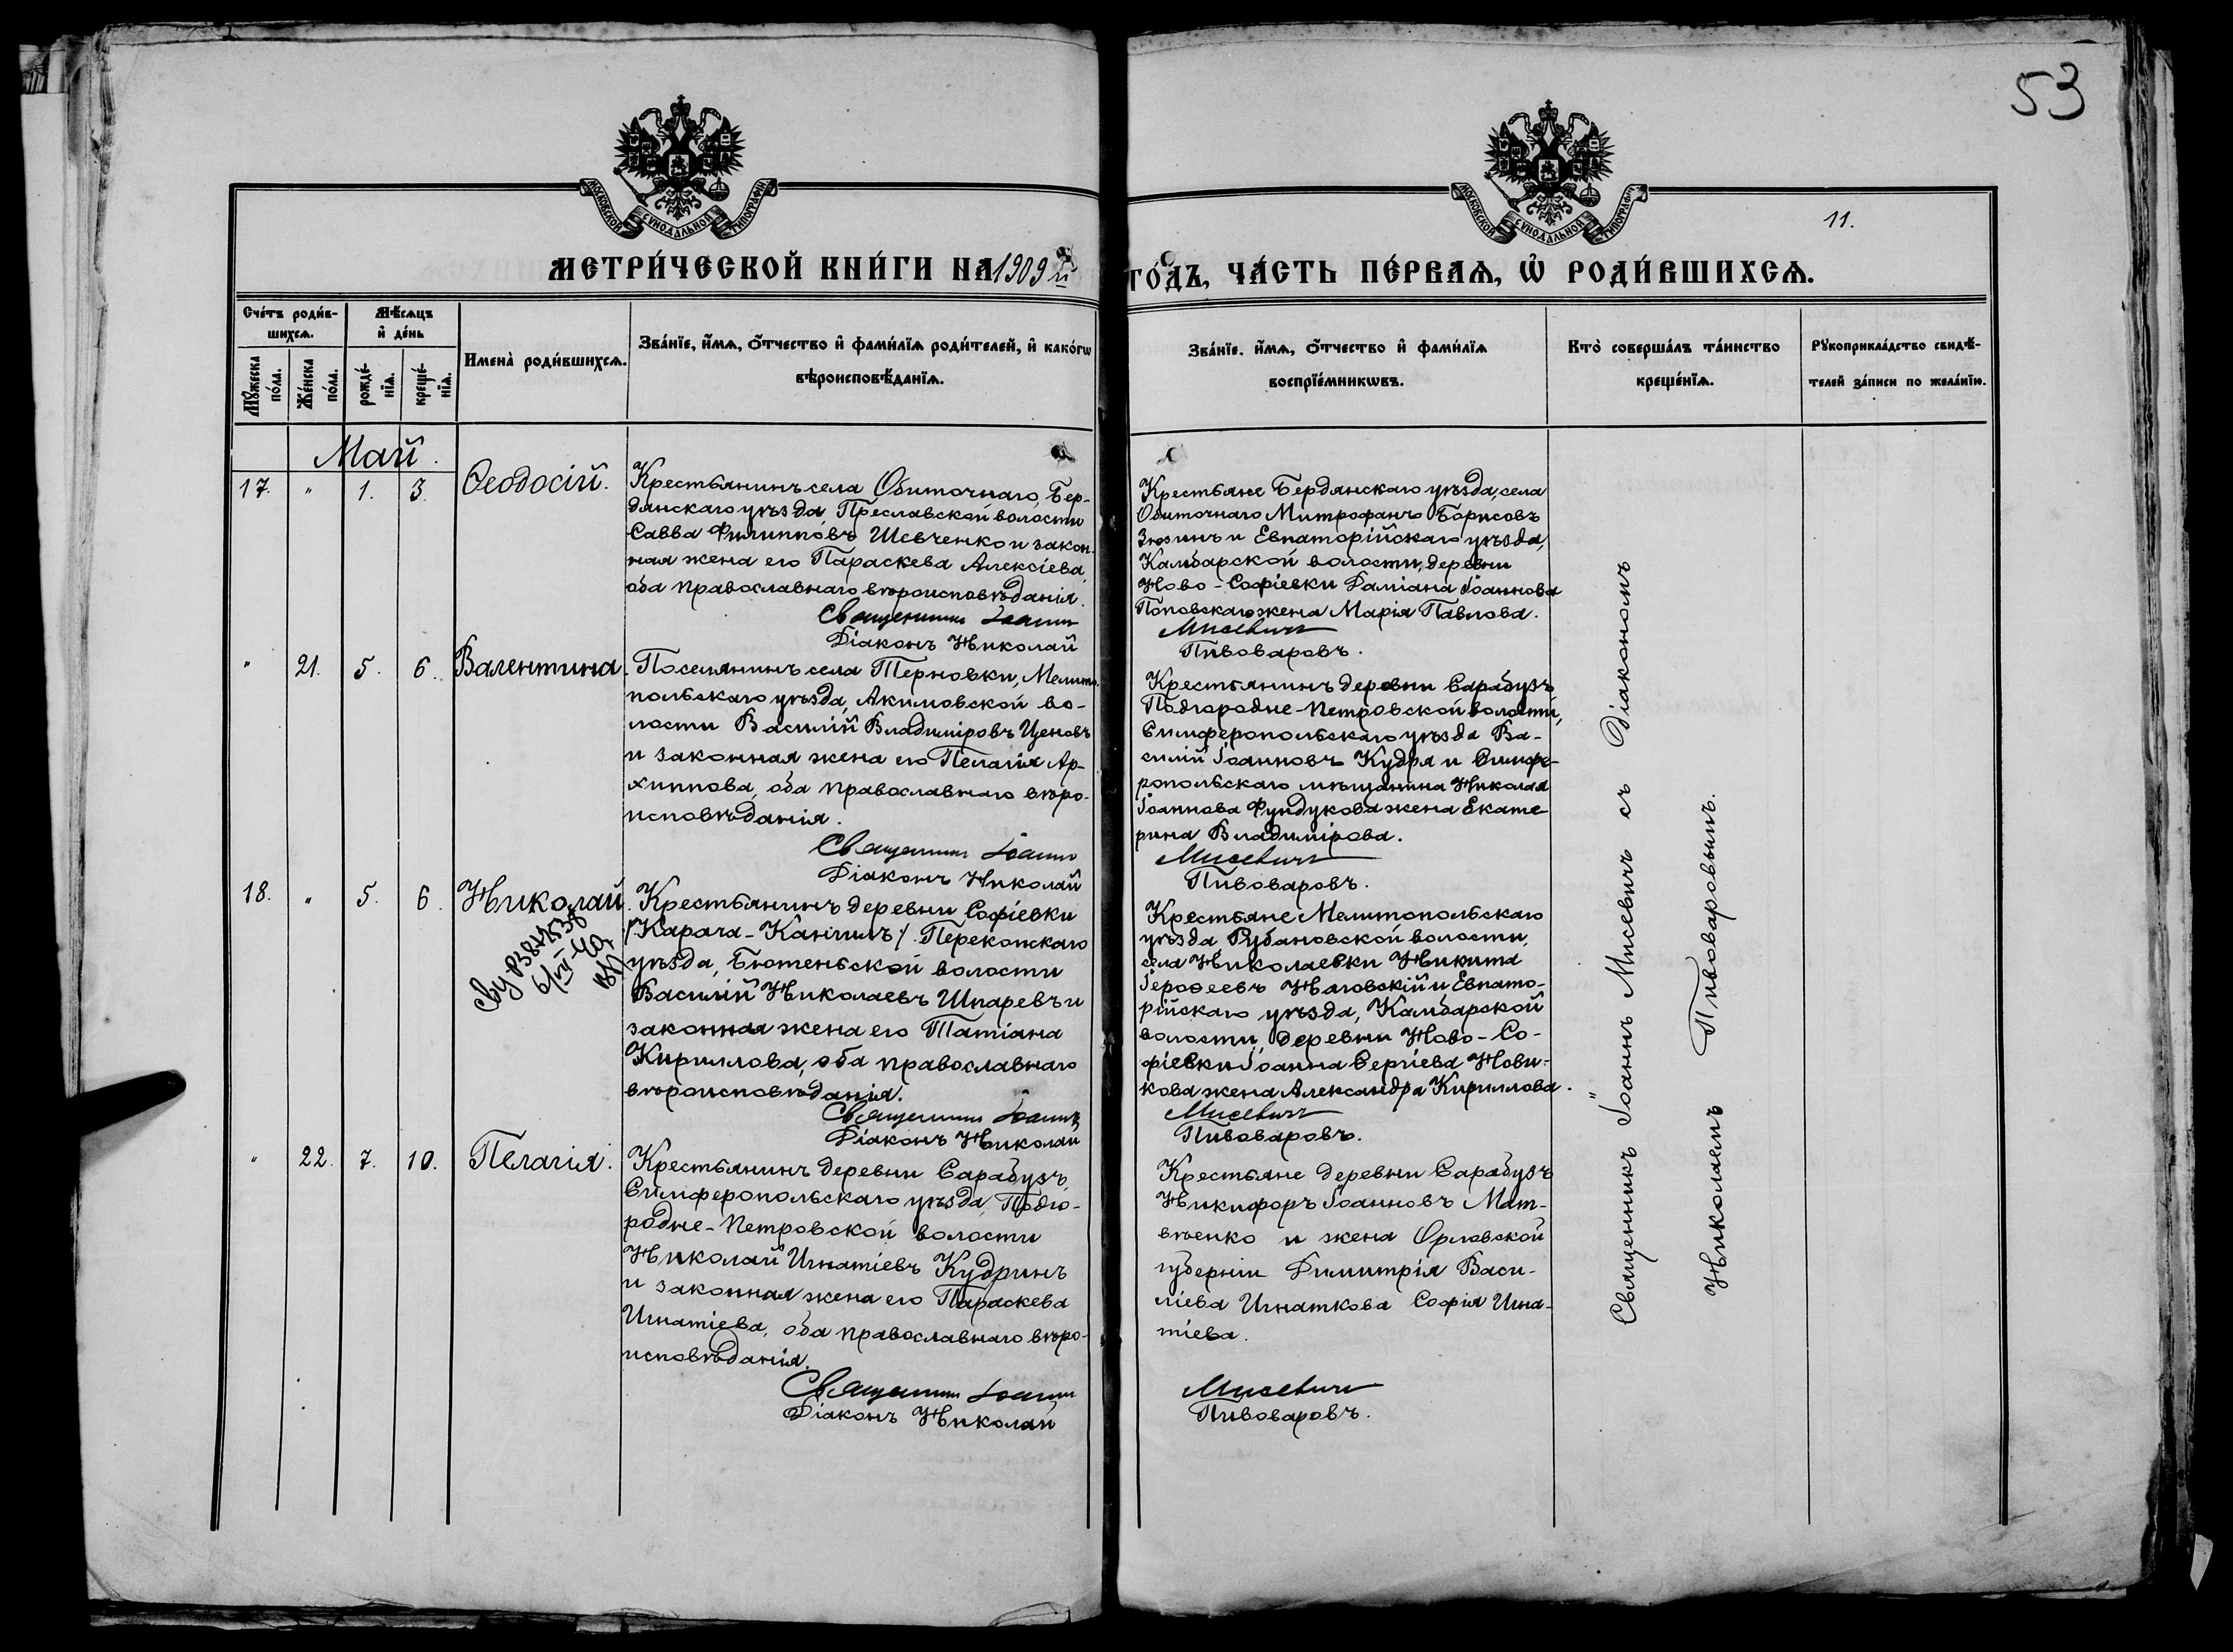 53
МОСКОВСКОЙ СѴНОДАЛЬНОЙ ТИПОГРАФІИ
МОСКОВСКОЙ СѴНОДАЛЬНОЙ ТИПОГРАФІИ
11.
МЕТРИ́ЧЕСКОЙ КНИ́ГИ НА 1909й
ГО́ДЪ, ЧА́СТЬ ПЕ́РВАѦ, Ѡ҆ РОДИ́ВШИХСѦ.
Сче́тъ роди́в-
шихсѧ.
Мꙋ́жеска по́ла.
Же́нска по́ла.
Мѣ́сѧцъ
и҆ де́нь
рожде́-
нїѧ.
креще́-
нїѧ.
Имена̀ роди́вшихсѧ.
Зва́нїе, и҆́мѧ, ѻ҆́тчество и҆ фами́лїѧ роди́телей, и҆ како́гѡ
вѣроисповѣ́данїѧ.
Зва́нїе, и҆́мѧ, ѻ҆́тчество и҆ фами́лїѧ
воспрїе́мникѡвъ.
Кто̀ соверша́лъ та́инство
креще́нїѧ.
Рꙋкоприкла́дство свидѣ́-
телей за́писи по жела́нїю.
Май.
17. " 1. 3. Ѳеодосій.
Крестьянинъ села Обиточнаго, Бер-
дянскаго уѣзда Преславской волости
Савва Филипповъ Шевченко и закон-
ная жена его Параскева Алексіева,
оба православнаго вѣроисповѣданія.
Священникъ Іоаннъ
Діаконъ Николай
Крестьяне Бердянскаго уѣзда, села
Обиточнаго Митрофанъ Борисовъ
Зюзинъ и Евпаторійскаго уѣзда,
Камбарской волости, деревни
Ново-Софіевки Даміана Іоаннова
Поповскаго жена Марія Павлова.
Мисевичъ
Пивоваровъ.
" 21. 5. 6. Валентина.
Поселянинъ села Терновки, Мелито-
польскаго уѣзда, Акимовской во-
лости Василій Владиміровъ Ценовъ
и законная жена его Пелагія Ар-
хиппова, оба православнаго вѣро-
исповѣданія.
Священникъ Іоаннъ
Діаконъ Николай
Крестьянинъ деревни Сарабузъ,
Подгородне-Петровской волости,
Симферопольскаго уѣзда Ва-
силій Іоанновъ Кудря и Симфе-
ропольскаго мѣщанина Николая
Іоаннова Фундукова жена Екате
рина Владимірова.
Мисевичъ
Пивоваровъ.
18. " 5. 6. Николай.
Крестьянинъ деревни Софіевки
/Карача-Кангилъ/ Перекопскаго
уѣзда, Бютеньской волости
Василій Николаевъ Шпаревъ и
законная жена его Татіана
Кириллова, оба православнаго
вѣроисповѣданія.
Священникъ Іоаннъ
Діаконъ Николай
Крестьяне Мелитопольскаго
уѣзда, Рубановской волости,
села Николаевки Никита
Героѳеевъ Наговскій и Евпато-
рійскаго уѣзда, Камбарской
волости, деревни Ново-Со-
фіевки Іоанна Сергіева Нови-
кова жена Александра Кириллова.
Мисевичъ
Пивоваровъ.
" 22. 7. 10. Пелагія.
Крестьянинъ деревни Сарабузъ,
Симферопольскаго уѣзда, Подго-
родне-Петровской волости
Николай Игнатіевъ Кудринъ
и законная жена его Параскева
Игнатіева, оба православнаго вѣро-
исповѣданія.
Священникъ Іоаннъ
Діаконъ Николай
Крестьяне деревни Сарабузъ
Никифоръ Іоанновъ Мат-
вѣенко и жена Орловской
губерніи Димитрія Васи-
ліева Игнаткова Софія Игна-
тіева.
Мисевичъ
Пивоваровъ.
Священникъ Іоаннъ Мисевичъ съ Діакономъ
Николаемъ Пивоваровымъ.